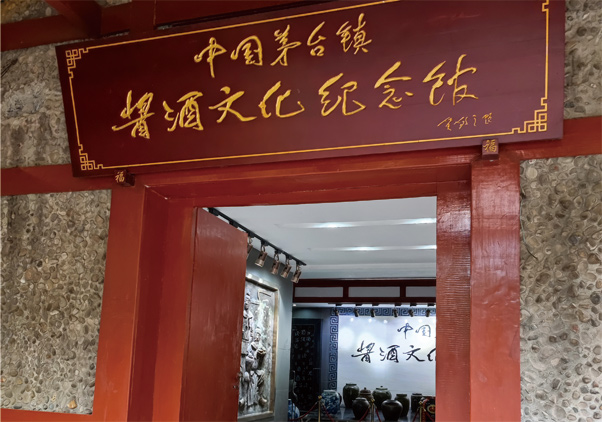 中国茅台镇
酱酒文化纪念馆
福
福
中国
酱酒文化